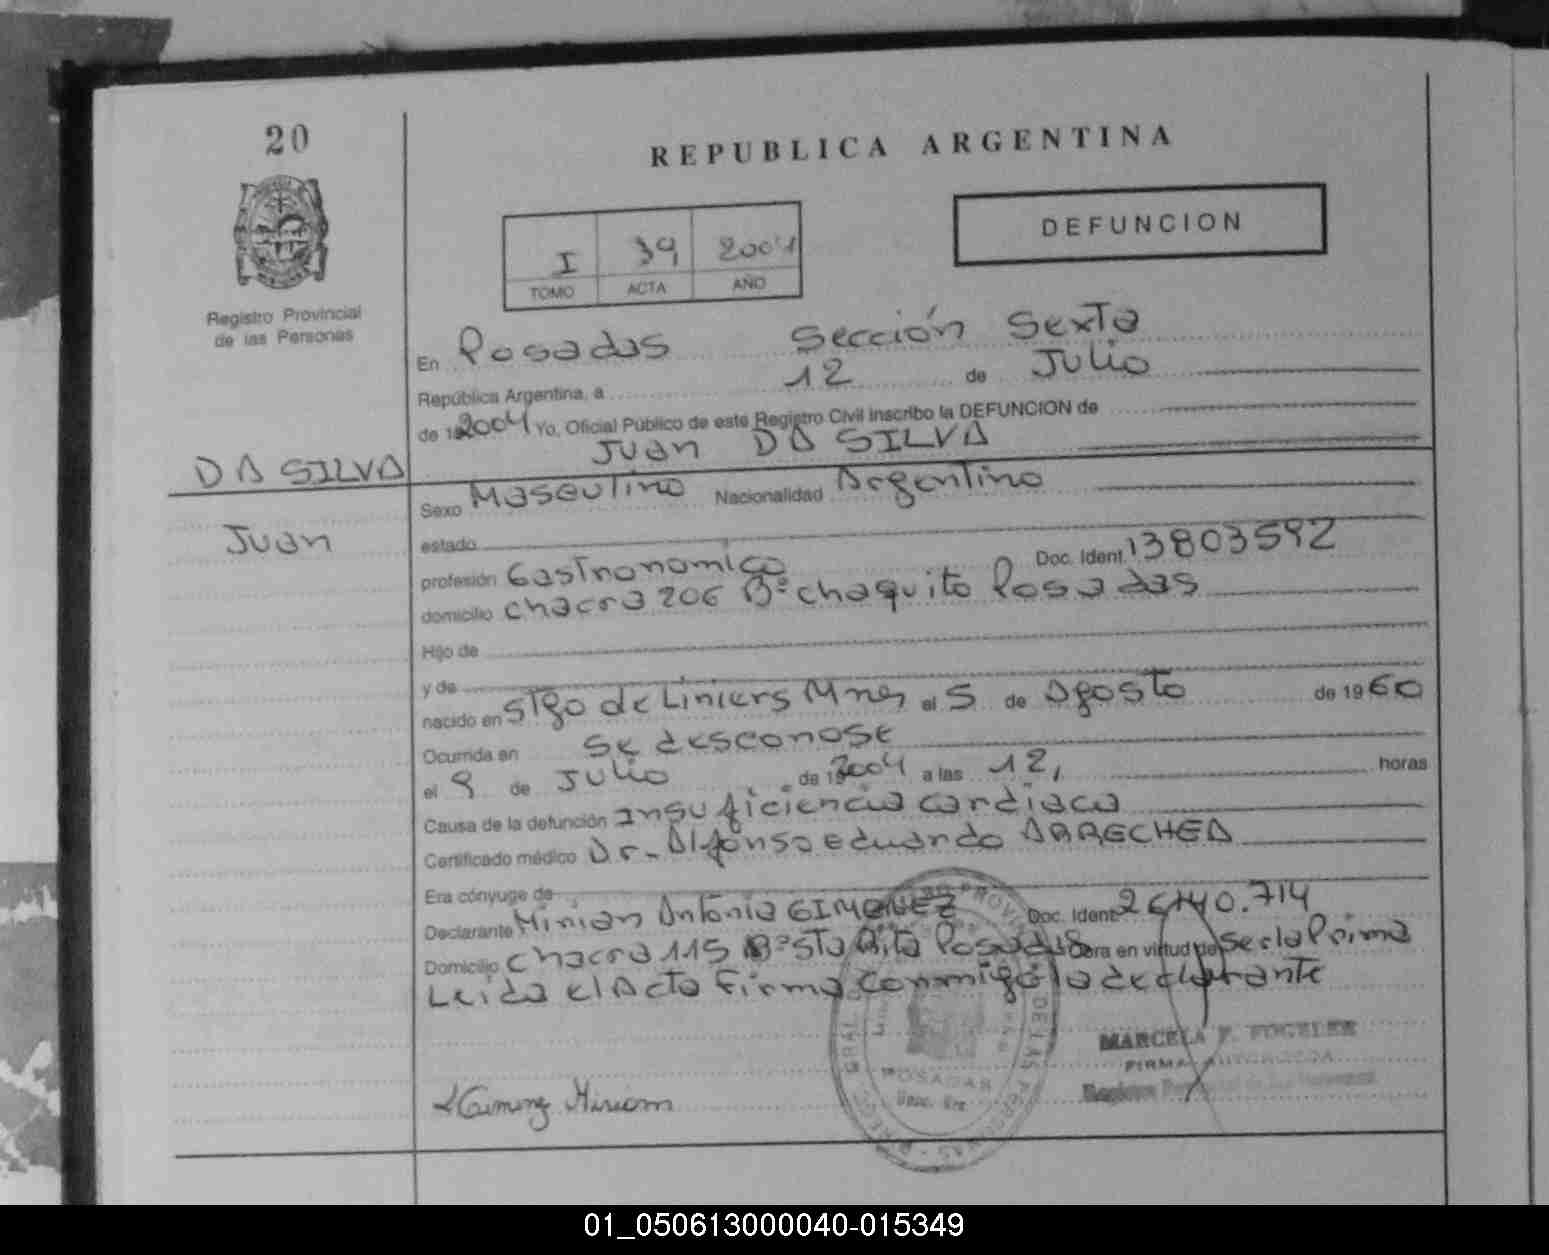 20
REPUBLICA ARGENTINA
DEFUNCION
I 39 2004
TOMO ACTA AÑO
Registro Provincial
de las Personas
En Posadas Sección Sexta
República Argentina, a 12 de Julio
de 2004 Yo, Oficial Público de este Registro Civil inscribo la DEFUNCION de
Juan DA SILVA
DA SILVA
Juan
Sexo Masculino Nacionalidad Argentino
estado
profesión Gastronomico Doc. Ident. 13803592
domicilio chacra 206 Bº chaquito Posadas
Hijo de
y de
nacido en Stgo de Liniers Mnes el 5 de Agosto de 1960
Ocurrida en se desconose
el 9 de Julio de 2004 a las 12, horas
Causa de la defunción Insuficiencia cardiaca
Certificado médico Dr. Alfonso eduardo ARRECHEA
Era cónyuge de
Declarante Mirian Antonia GIMENEZ Doc. Ident. 26.140.714
Domicilio chacra 115 Bº Sta Rita Posadas Obra en virtud de Ser la Prima
Leida el Acta Firma Conmigo la declarante
MARCELA F. FOGELER
FIRMA AUTORIZADA
Registro Provincial de las Personas
POSADAS
Gimenez Miriam
01_050613000040-015349